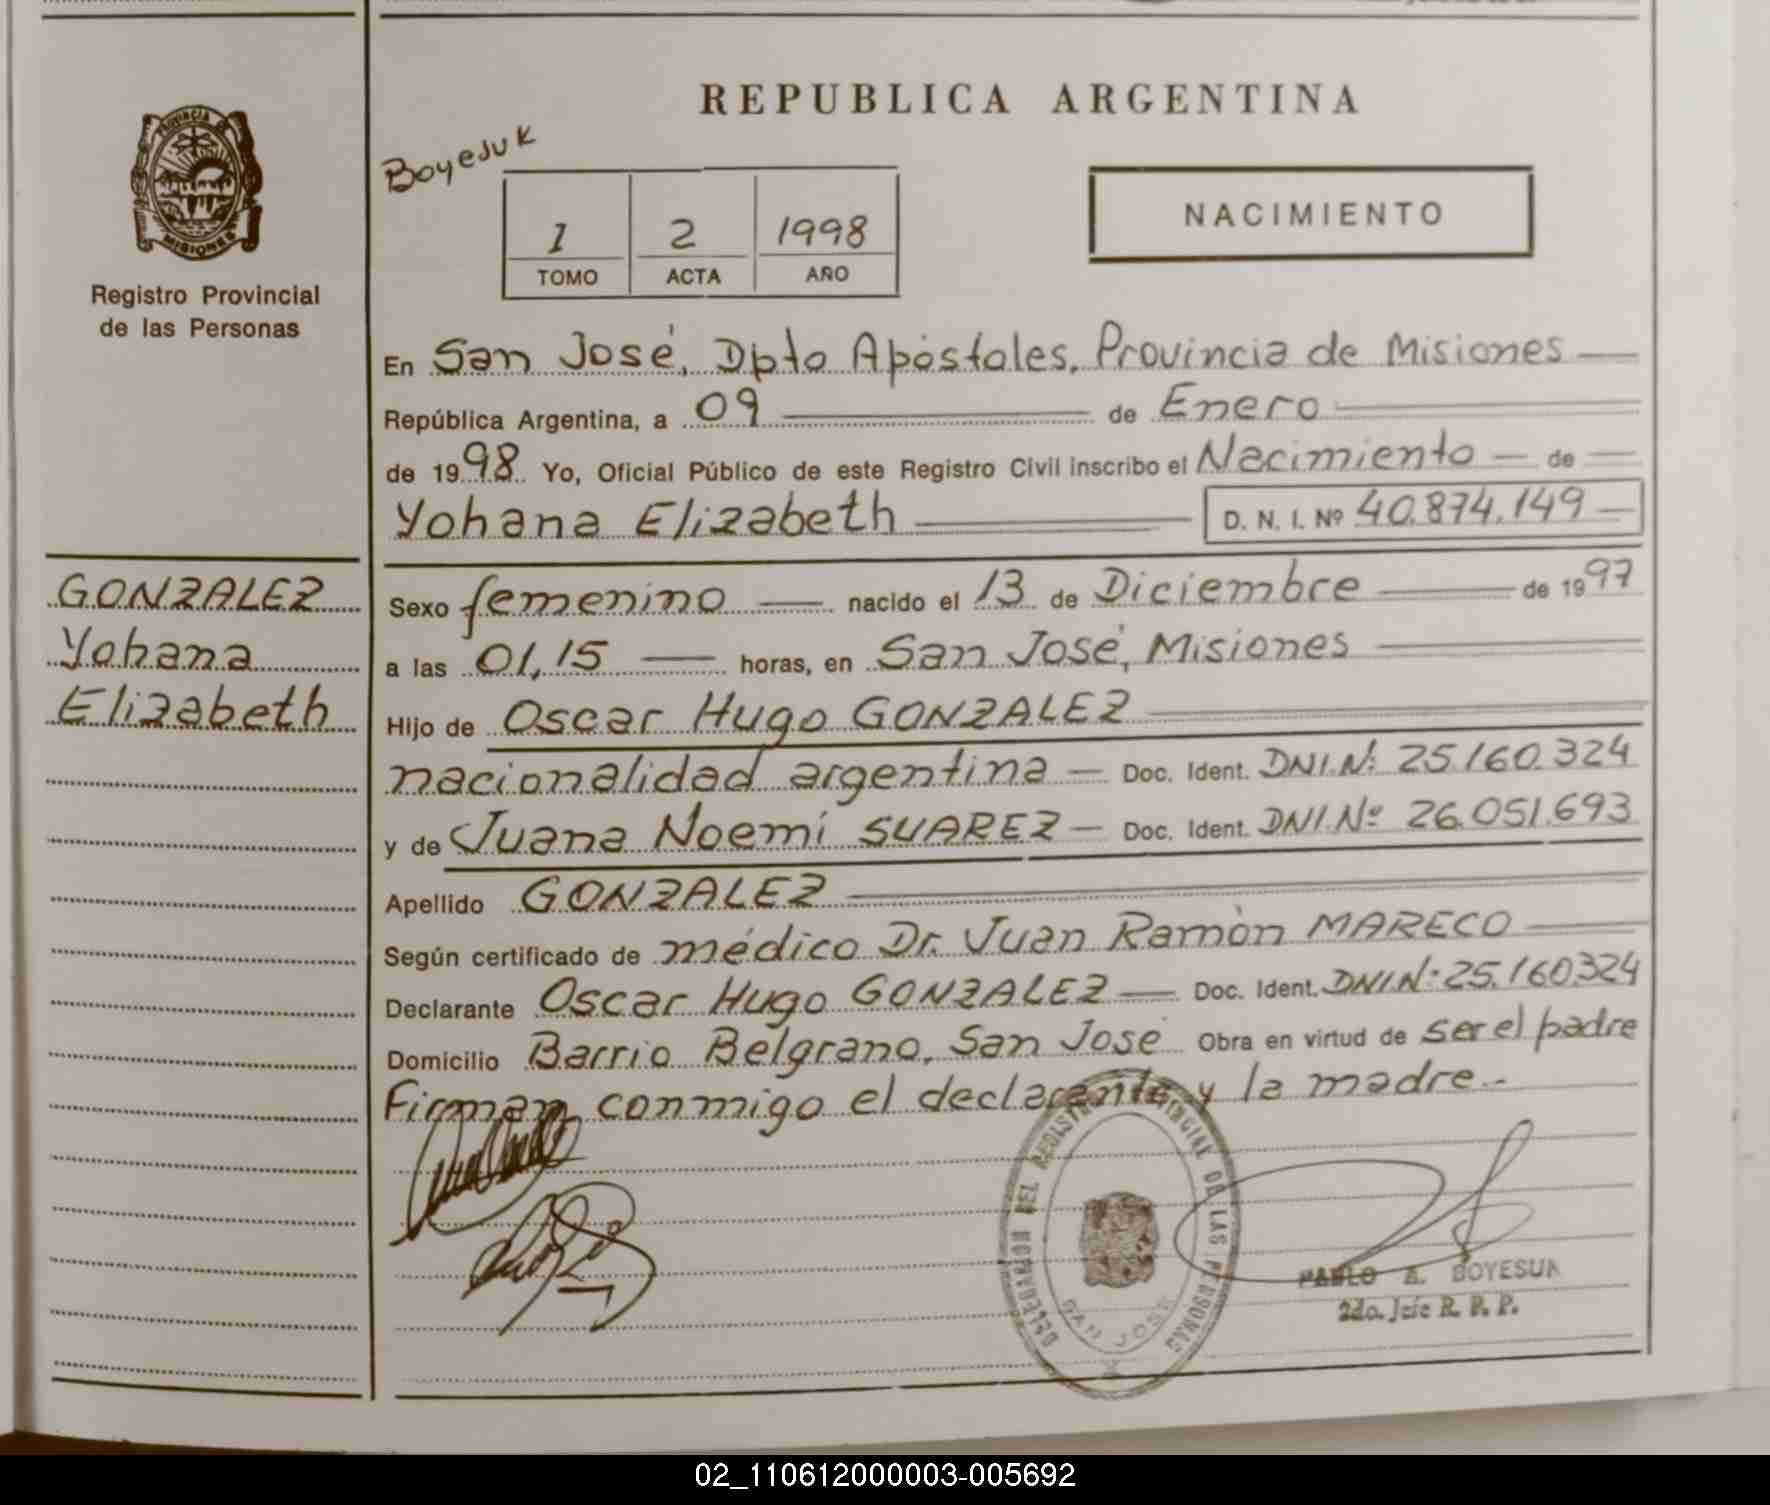 REPUBLICA ARGENTINA
PROVINCIA DE
MISIONES
Registro Provincial
de las Personas
Boyejuk
1 2 1998
TOMO ACTA AÑO
NACIMIENTO
En San José, Dpto Apóstoles, Provincia de Misiones
República Argentina, a 09 de Enero
de 1998 Yo, Oficial Público de este Registro Civil inscribo el Nacimiento de
Yohana Elizabeth D. N. I. Nº 40.874.149
GONZALEZ
Yohana
Elizabeth
Sexo femenino nacido el 13 de Diciembre de 1997
a las 01,15 horas, en San José, Misiones
Hijo de Oscar Hugo GONZALEZ
nacionalidad argentina Doc. Ident. DNI.Nº 25.160.324
y de Juana Noemí SUAREZ Doc. Ident. DNI.Nº 26.051.693
Apellido GONZALEZ
Según certificado de médico Dr. Juan Ramón MARECO
Declarante Oscar Hugo GONZALEZ Doc. Ident. DNI.Nº 25.160.324
Domicilio Barrio Belgrano, San José Obra en virtud de ser el padre
Firman conmigo el declarante y la madre.-
DEL REGISTRO PROVINCIAL DE LAS PERSONAS
SAN JOSE
PABLO A. BOYESUK
2do. Jefe R. P. P.
02_110612000003-005692